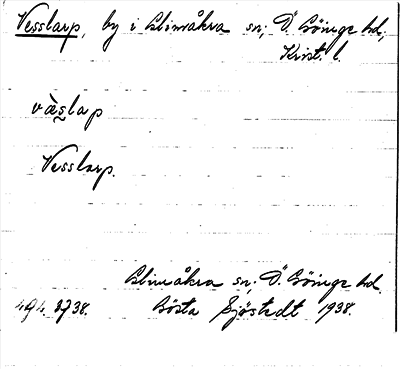 Vesslarp, by i Glimåkra sn; Ö. Göinge hd,
Krist. l.
vä̀slap
Vesslarp.
Glimåkra sn; Ö. Göinge hd.
Gösta Sjöstedt 1938.